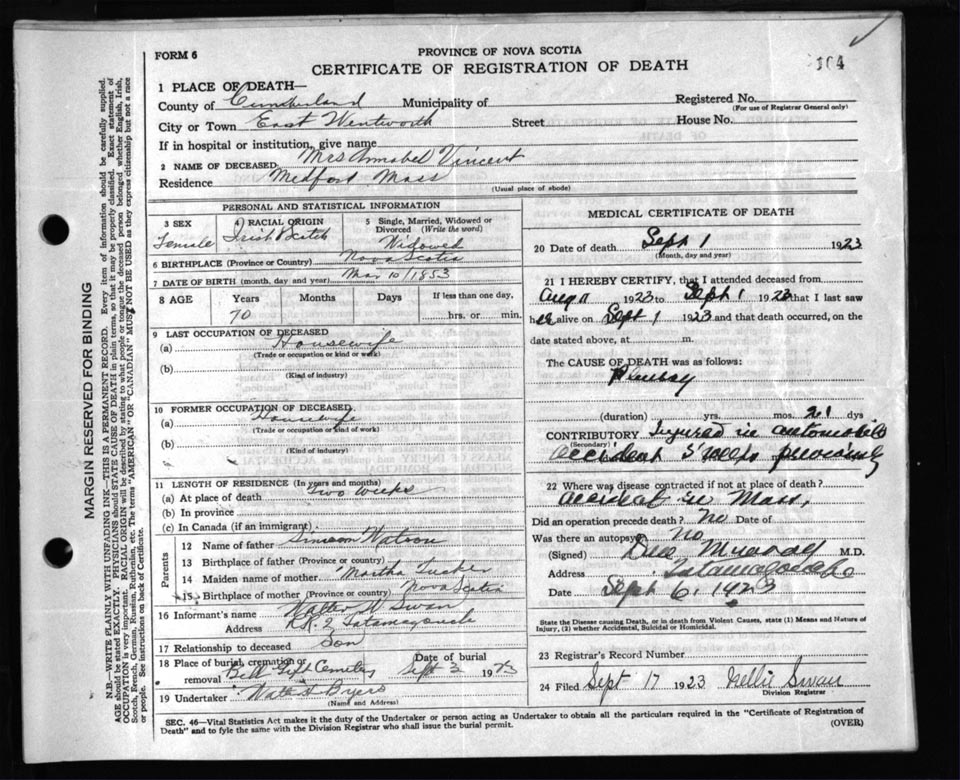 FORM 6
PROVINCE OF NOVA SCOTIA
CERTIFICATE OF REGISTRATION OF DEATH
104
1 PLACE OF DEATH—
County of Cumberland Municipality of Registered No.
(For use of Registrar General only)
City or Town East Wentworth Street House No.
If in hospital or institution, give name
2 NAME OF DECEASED Mrs Annabel Vincent
Residence Medford Mass
(Usual place of abode)
PERSONAL AND STATISTICAL INFORMATION
3 SEX
Female
4 RACIAL ORIGIN
Irish Scotch
5 Single, Married, Widowed or Divorced (Write the word)
Widowed
6 BIRTHPLACE (Province or Country) Nova Scotia
7 DATE OF BIRTH (month, day and year) Mar 10/1853
8 AGE Years Months Days If less than one day,
70 hrs. or min.
9 LAST OCCUPATION OF DECEASED
(a) Housewife
(Trade or occupation or kind or work)
(b)
(Kind of industry)
10 FORMER OCCUPATION OF DECEASED
(a) Housewife
(Trade or occupation or kind of work)
(b)
(Kind of industry)
11 LENGTH OF RESIDENCE (In years and months)
(a) At place of death Two Weeks
(b) In province
(c) In Canada (if an immigrant)
Parents
12 Name of father Simeon Watson
13 Birthplace of father (Province or country)
14 Maiden name of mother Martha Tucker
15 Birthplace of mother (Province or country) Nova Scotia
16 Informant's name Walter W Swan
Address R.R. 2 Tatamagouche
17 Relationship to deceased Son
18 Place of burial, cremation or removal Cemetery Date of burial Sept 3 1923
19 Undertaker Byers
(Name and Address)
MEDICAL CERTIFICATE OF DEATH
20 Date of death Sept 1 1923
(Month, day and year)
21 I HEREBY CERTIFY, that I attended deceased from
Aug 11 1923 to Sept 1 1923 that I last saw
her alive on Sept 1 1923 and that death occurred, on the
date stated above, at m.
The CAUSE OF DEATH was as follows:
Pleurisy
(duration) yrs. mos. 21 dys
CONTRIBUTORY Injured in automobile
(Secondary)
accident 3 weeks previously
22 Where was disease contracted if not at place of death?
accident in Mass.
Did an operation precede death? No Date of
Was there an autopsy? No
(Signed) M.D.
Address Tatamagouche
Date Sept 6, 1923
State the Disease causing Death, or in death from Violent Causes, state (1) Means and Nature of
Injury, (2) whether Accidental, Suicidal or Homicidal.
23 Registrar's Record Number
24 Filed Sept 17 1923 Nellie Swan
Division Registrar
SEC. 46—Vital Statistics Act makes it the duty of the Undertaker or person acting as Undertaker to obtain all the particulars required in the "Certificate of Registration of
Death" and to fyle the same with the Division Registrar who shall issue the burial permit.
(OVER)
MARGIN RESERVED FOR BINDING
N.B.—WRITE PLAINLY WITH UNFADING INK—THIS IS A PERMANENT RECORD. Every item of information should be carefully supplied.
AGE should be stated EXACTLY. PHYSICIANS should STATE CAUSE OF DEATH in plain terms, so that it may be properly classified. Exact statement of
OCCUPATION is very important. RACIAL ORIGIN will be described by stating to what people or tongue the deceased person belonged whether English, Irish,
Scotch, French, German, Russian, Ruthenian, etc. The terms "AMERICAN" OR "CANADIAN" MUST NOT BE USED as they express citizenship but not a race
or people. See instructions on back of Certificate.